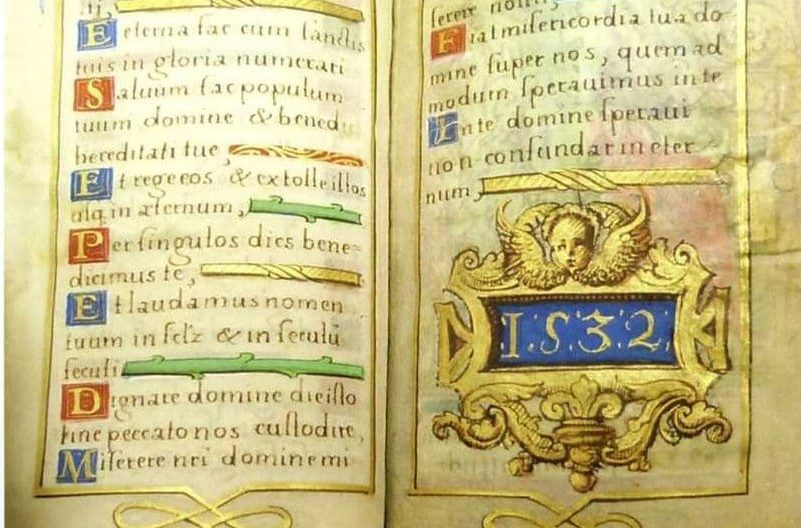 ij,
Eeterna fac cum sanctis
tuis in gloria numerari
Saluum fac populum
tuum domine & benedic
hereditati tue,
Et rege eos & extolle illos
usq; in æternum,
Per singulos dies bene=
dicimus te,
Et laudamus nomen
tuum in sclꝫ & in seculū
seculi
Dignare domine die isto
sine peccato nos custodire,
Miserere nri domine mi
serere nostri,
Fiat misericordia tua do
mine super nos, quem ad
modum sperauimus in te
In te domine speraui
non confundar in eter
num,
1.5.3.2.